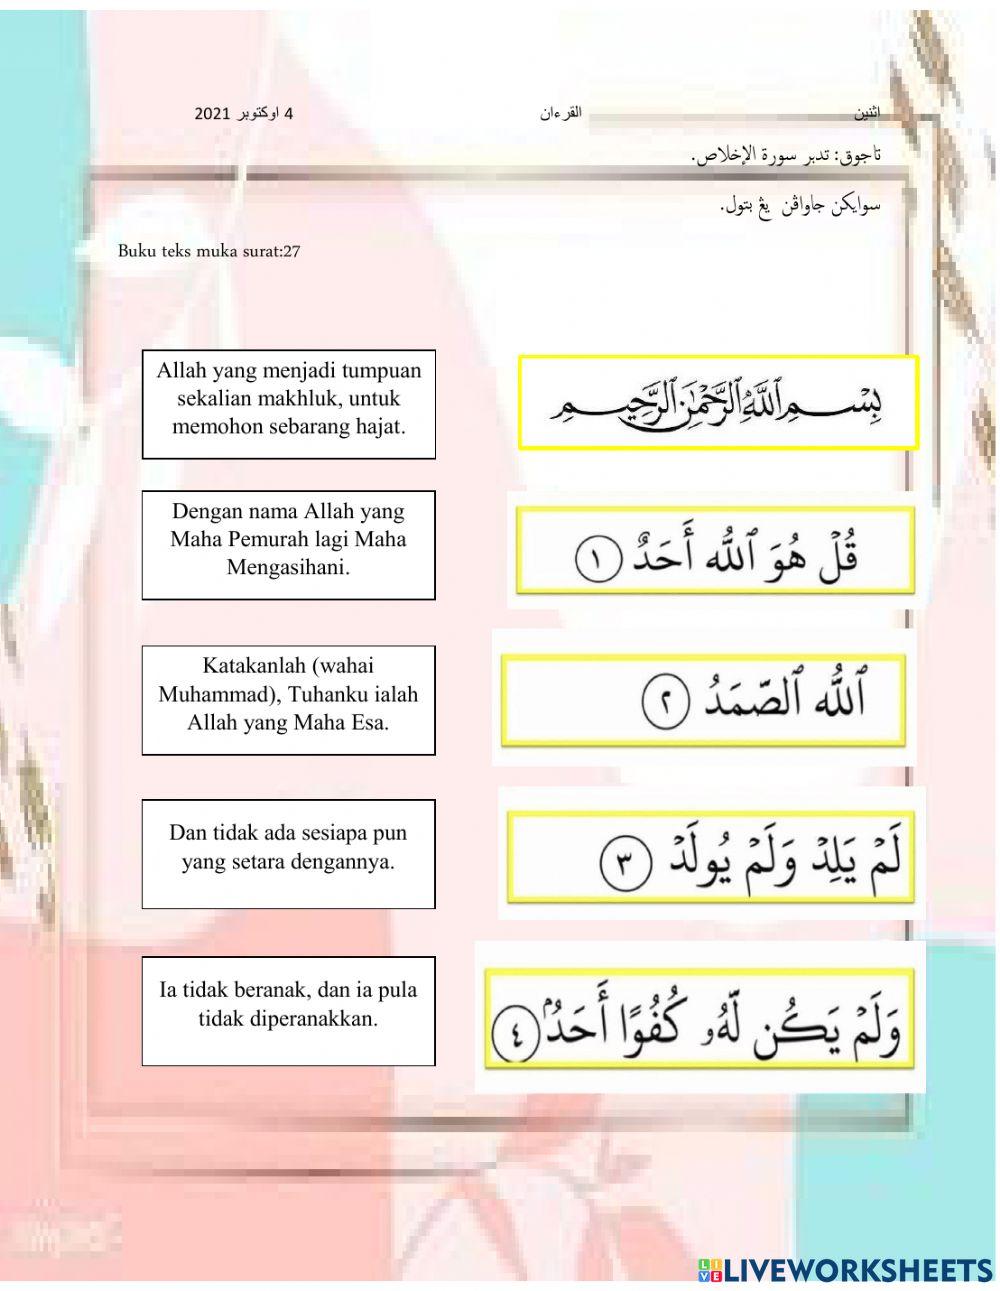 اثنين القرءان 4 اوكتوبر 2021
تاجوق: تدبر سورة الإخلاص.
سوايكن جاواڤن يڠ بتول.
Buku teks muka surat:27
Allah yang menjadi tumpuan
sekalian makhluk, untuk
memohon sebarang hajat.
بِسْمِ ٱللَّهِ ٱلرَّحْمَٰنِ ٱلرَّحِيمِ
Dengan nama Allah yang
Maha Pemurah lagi Maha
Mengasihani.
قُلْ هُوَ ٱللَّهُ أَحَدٌ ١
Katakanlah (wahai
Muhammad), Tuhanku ialah
Allah yang Maha Esa.
ٱللَّهُ ٱلصَّمَدُ ٢
Dan tidak ada sesiapa pun
yang setara dengannya.
لَمْ يَلِدْ وَلَمْ يُولَدْ ٣
Ia tidak beranak, dan ia pula
tidak diperanakkan.
وَلَمْ يَكُن لَّهُۥ كُفُوًا أَحَدٌۢ ٤
LIVE LIVEWORKSHEETS